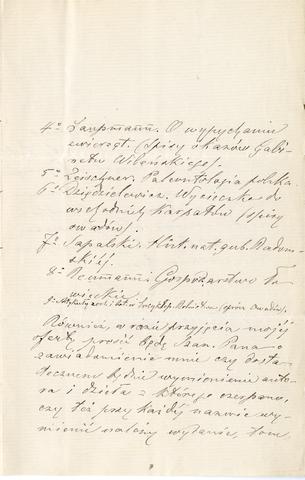 4° Laupmann. O wypychaniu
zwierząt. (Spisy okazów Gabi-
netu Wileńskiego).
5° Zeischner. Paleontologia polska.
6° Dziędzielewicz. Wycieczka do
wschodnich Karpatów (spisy
owadów).
7° Sapalski. Hist. nat. gub. Radom-
skiéj.
8° Neumann: Gospodarstwo Ło-
wieckie.
9° Artykuły z Encyklop. Rolnictwa (oprócz owadów).
Również, w razie przyjęcia mojéj
oferty prosić będę Szan. Pana o
zawiadomienie mnie czy dosta-
tecznem będzie wymienienie auto-
ra i dzieła z którego czerpano,
czy też przy każdéj nazwie wy-
mienić należy wydanie, tom,